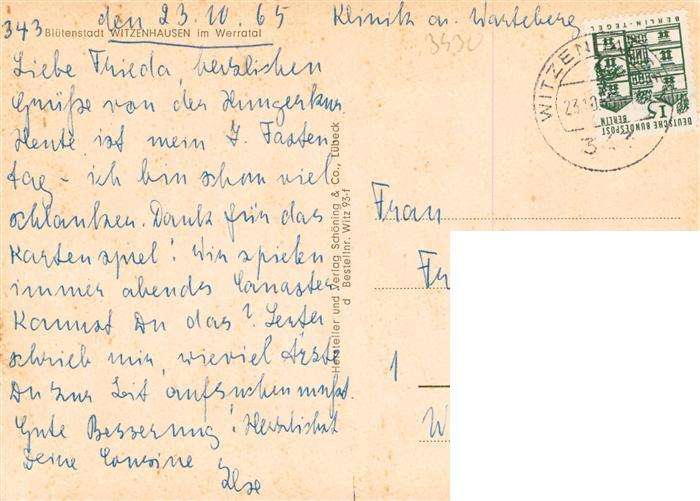 343 den 23.10.65 Klinik a. Warteberg
3430
Blütenstadt WITZENHAUSEN im Werratal
Liebe Frieda, herzlichen
Grüße von der Hungerkur.
Heute ist mein 7. Fasten
tag - ich bin schon viel
schlanker. Dank für das
Kartenspiel! Wir spielen
immer abends Canaster
Kannst Du das?
schrieb mir, wieviel Ärzte
Du zur Zeit aufsuchen mußt.
Gute Besserung! Herzlichst
Deine Cousine
Ilse
Hersteller und Verlag Schöning & Co., Lübeck
d Bestellnr. Witz 93-f
WITZEN
23.10
343
BERLIN-TEGEL
15
DEUTSCHE BUNDESPOST
BERLIN
Frau
Fr
1
W